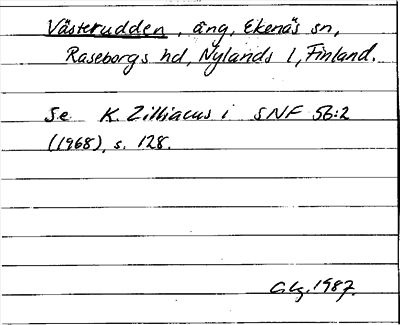 Västerudden, äng, Ekenäs sn,
Raseborgs hd, Nylands l, Finland.
Se K. Zilliacus i SNF 56:2
(1968), s. 128.
1987.